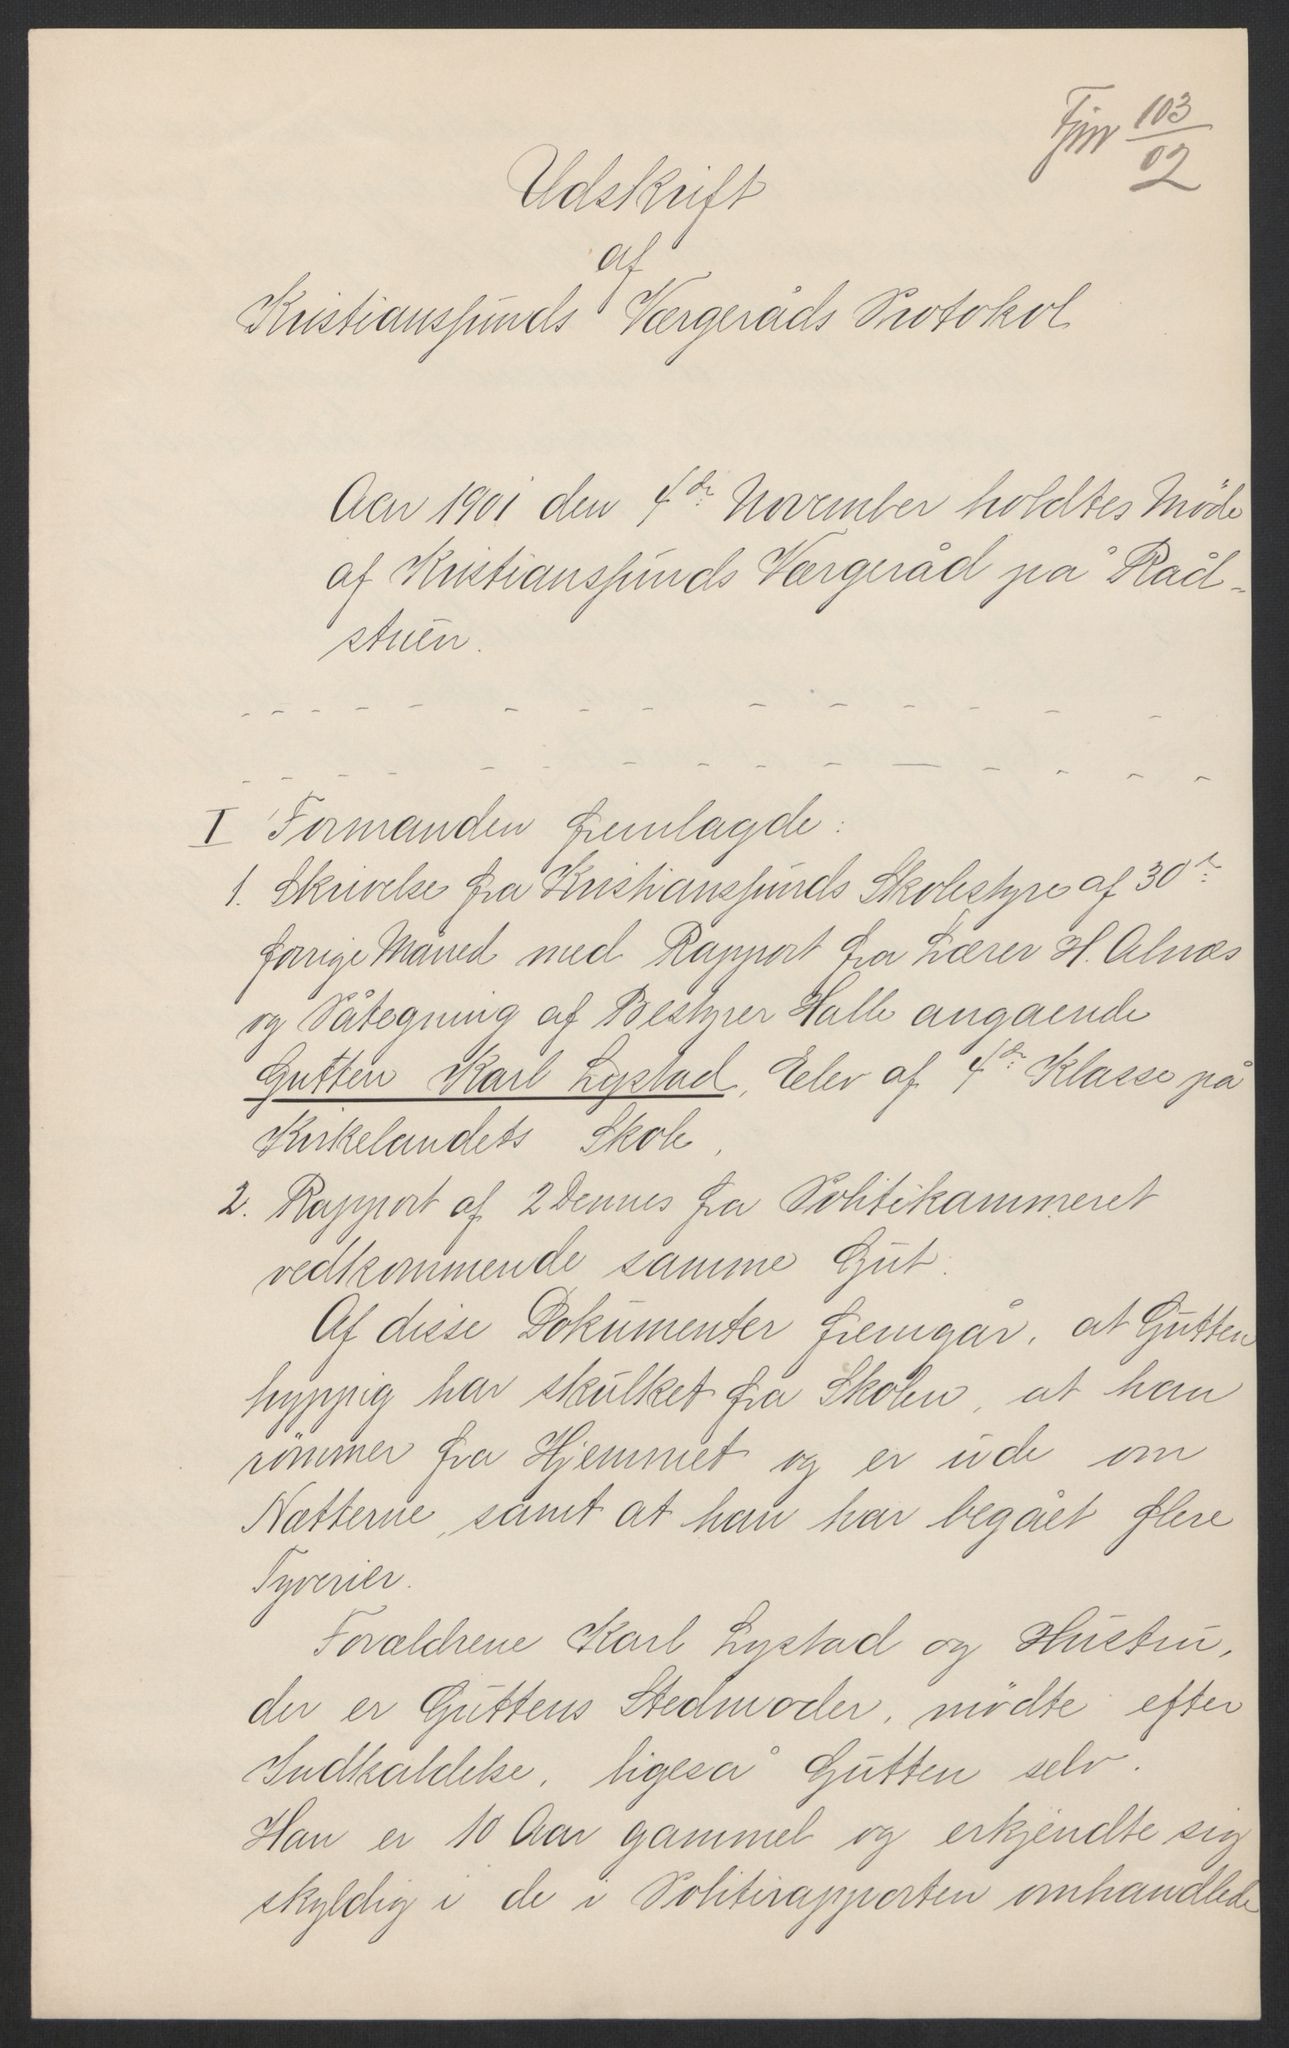 103
02
Udskrift
af
Kristianssunds Værgeråds Protokol
Aar 1901 den 4de November holdtes Möde
af Kristianssunds Værgeråd på Råd-
stuen.
I Formanden fremlagde:
1. Skrivelse fra Kristianssunds Skolestyre af 30te
forrige Måned med Rapport fra Lærer H. Alnæs
og Påtegning af Bestyrer Halle angaaende
Gutten Karl Lystad, Elev af 4de Klasse på
Kirkelandets Skole.
2. Rapport af 2 Dennes fra Politikammeret
vedkommende samme Gut.
Af disse Dokumenter fremgår, at Gutten
hyppig har skulket fra Skolen, at han
römmer fra Hjemmet og er ude om
Nætterne, samt at han har begået flere
Tyverier.
Forældrene Karl Lystad og Hustru,
der er Guttens Stedmoder, mödte efter
Indkaldelse, ligeså Gutten selv.
Han er 10 Aar gammel og erkjendte sig
skyldig i de i Politirapporten omhandlede